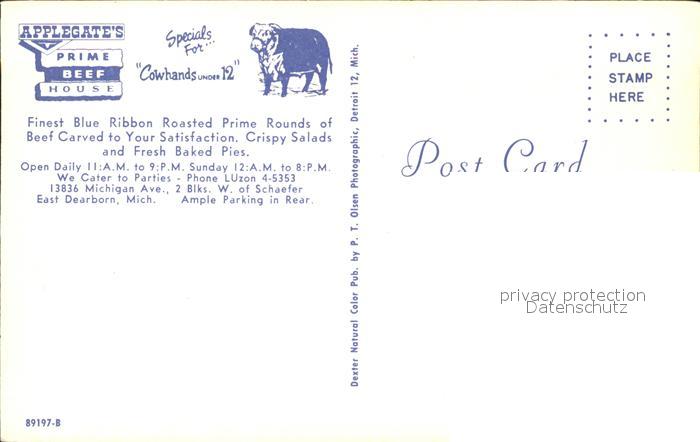 APPLEGATE'S
PRIME
BEEF
HOUSE
Specials
For...
"Cowhands UNDER 12"
Finest Blue Ribbon Roasted Prime Rounds of
Beef Carved to Your Satisfaction. Crispy Salads
and Fresh Baked Pies.
Open Daily 11:A.M. to 9:P.M. Sunday 12:A.M. to 8:P.M.
We Cater to Parties - Phone LUzon 4-5353
13836 Michigan Ave., 2 Blks. W. of Schaefer
East Dearborn, Mich. Ample Parking in Rear.
89197-B
Dexter Natural Color Pub. by P. T. Olsen Photographic, Detroit 12, Mich.
PLACE
STAMP
HERE
Post Card
privacy protection
Datenschutz